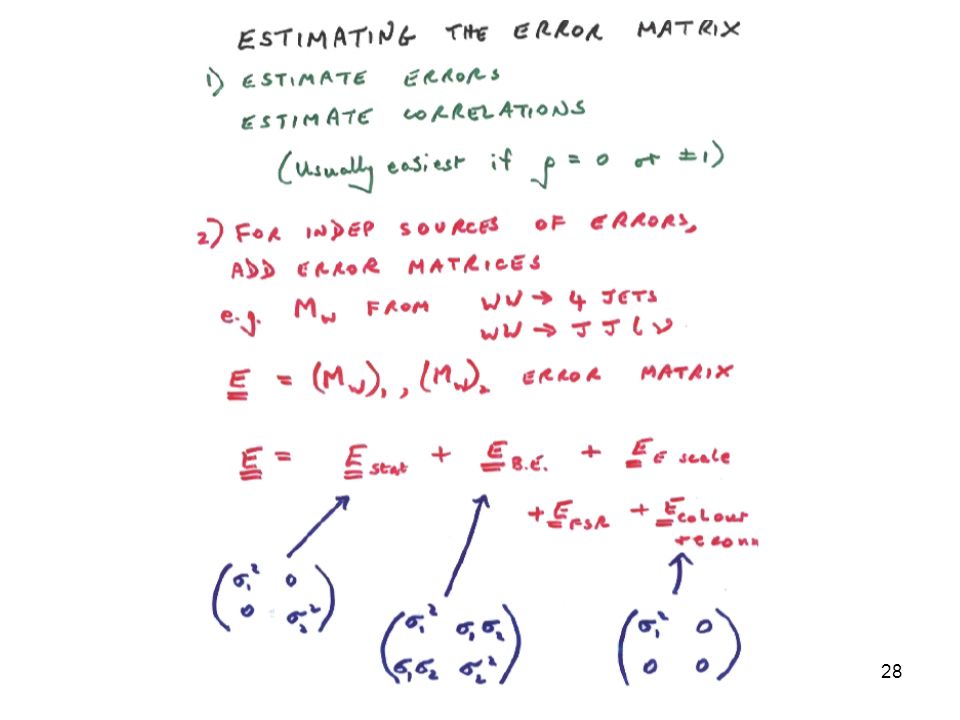 ESTIMATING THE ERROR MATRIX
1) ESTIMATE ERRORS
ESTIMATE CORRELATIONS
(Usually easiest if ρ = 0 or ±1)
2) FOR INDEP SOURCES OF ERRORS,
ADD ERROR MATRICES
e.g. M_W FROM WW → 4 JETS
WW → J J l ν
E = (M_W)₁, (M_W)₂ ERROR MATRIX
E = E stat + E B.E. + E E scale
+ E FSR + E colour
reconn
(σ₁² 0
0 σ₂²)
(σ₁² σ₁σ₂
σ₁σ₂ σ₂²)
(σ₁² 0
0 0)
28